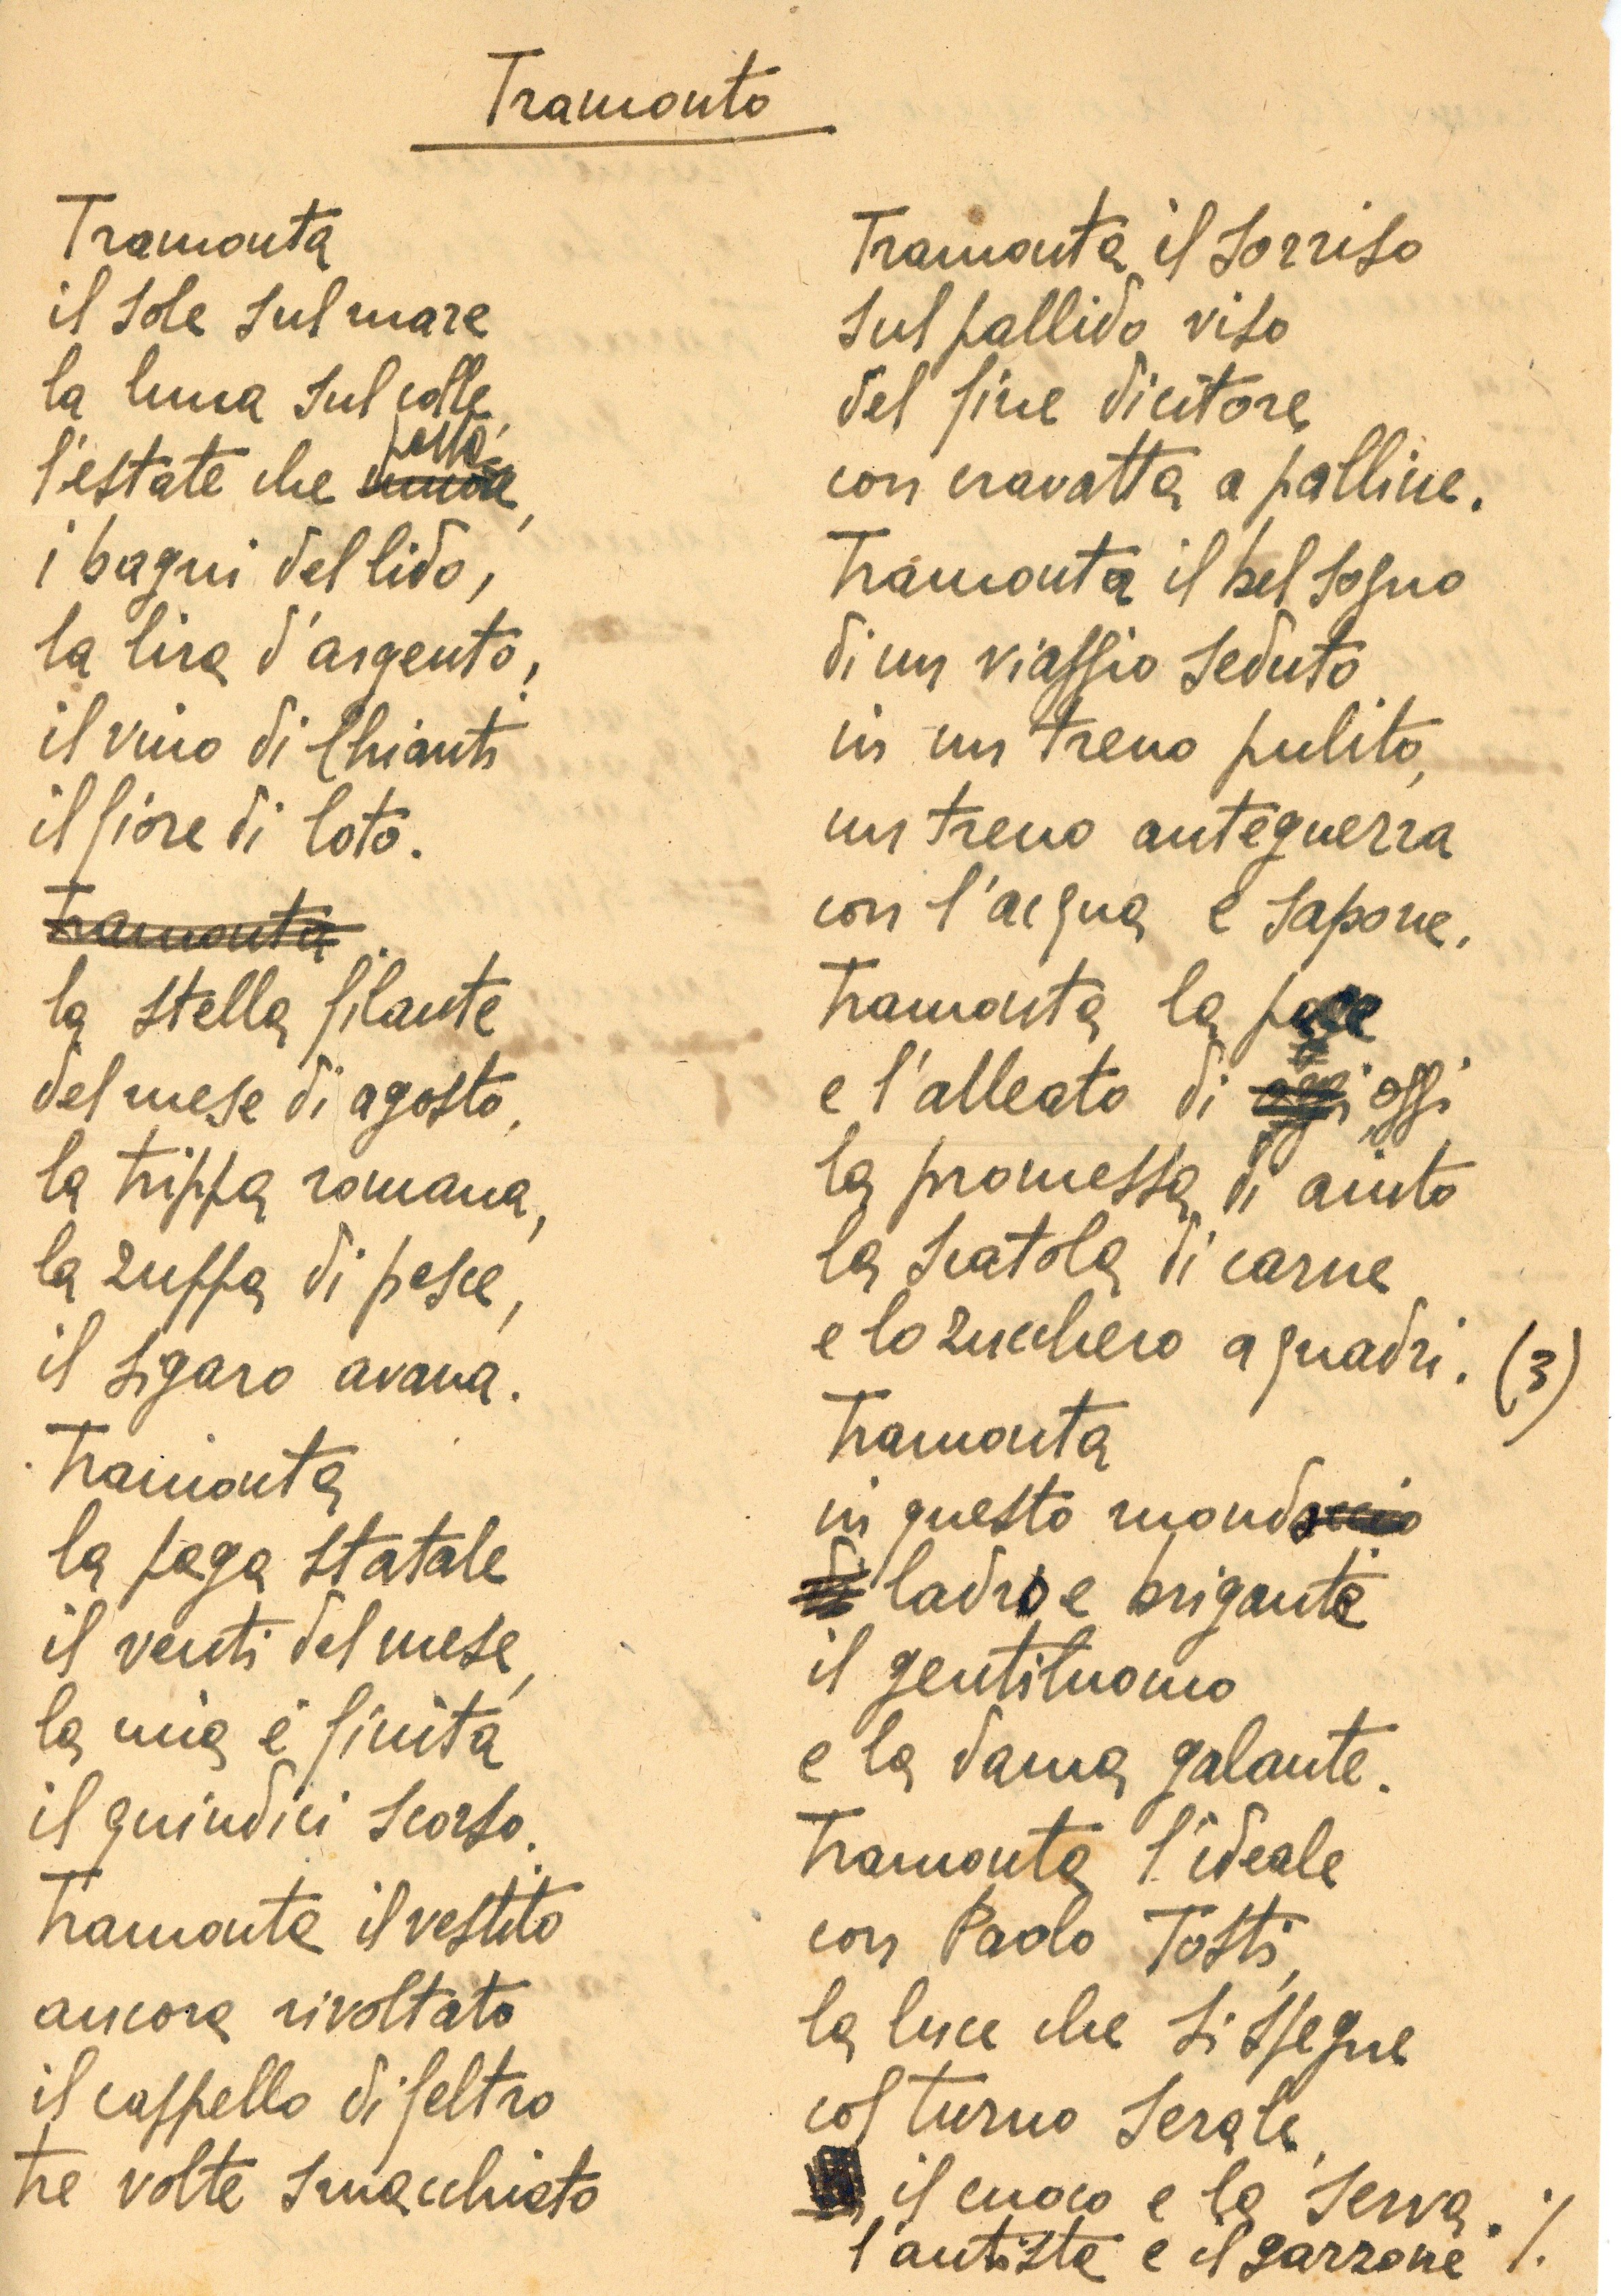 Tramonto
Tramonta
il sole sul mare
la luna sul colle,
passa,
l'estate che muore,
i bagni del lido,
la lira d'argento,
il vino di Chianti
il fiore di loto.
Tramonta
la stella filante
del mese di agosto,
la trippa romana,
la zuppa di pesce,
il sigaro avana.
Tramonta
la paga statale
il venti del mese,
la mia è finita
il quindici scorso.
Tramonta il vestito
ancora rivoltato
il cappello di feltro
tre volte smacchiato
Tramonta il sorriso
sul pallido viso
del fine dicitore
con cravatta a palline.
Tramonta il bel sogno
di un viaggio seduto
in un treno pulito,
un treno anteguerra
con l'acqua e sapone.
Tramonta la pace
e l'alleato di oggi oggi
la promessa di aiuto
la scatola di carne
e lo zucchero a quadri. (3)
Tramonta
in questo mondaccio
di ladro e brigante
il gentiluomo
e la dama galante.
Tramonta l'ideale
con Paolo Tosti,
la luce che si spegne
col turno serale,
il cuoco e la serva.
l'autista e il garzone ./.